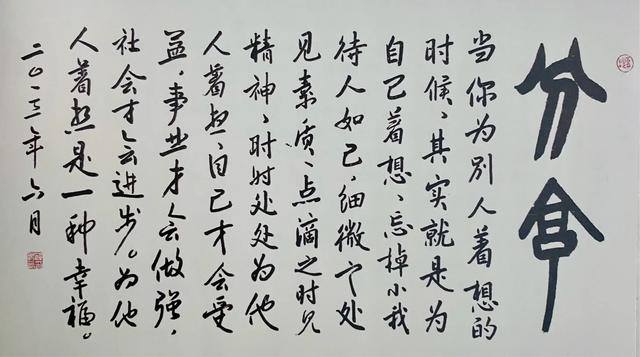 分享
当你为别人着想的
时候、其实就是为
自己着想、忘掉小我
待人如己、细微之处
见素质、点滴之时见
精神、时时处处为他
人着想、自己才会受
益、事业才会做强、
社会才会进步。为他
人着想是一种幸福。
二〇一三年六月